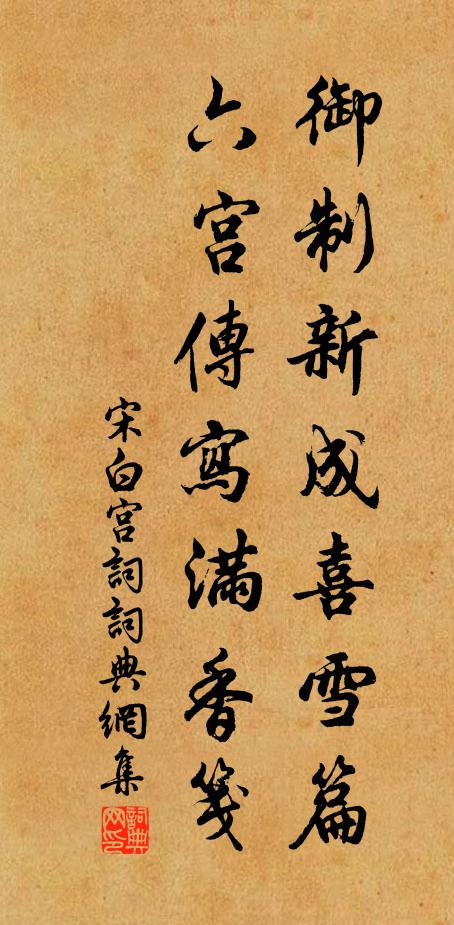 御制新成喜雪篇
六宮傳寫滿香箋
宋白宮詞詞典網集
詞典網印